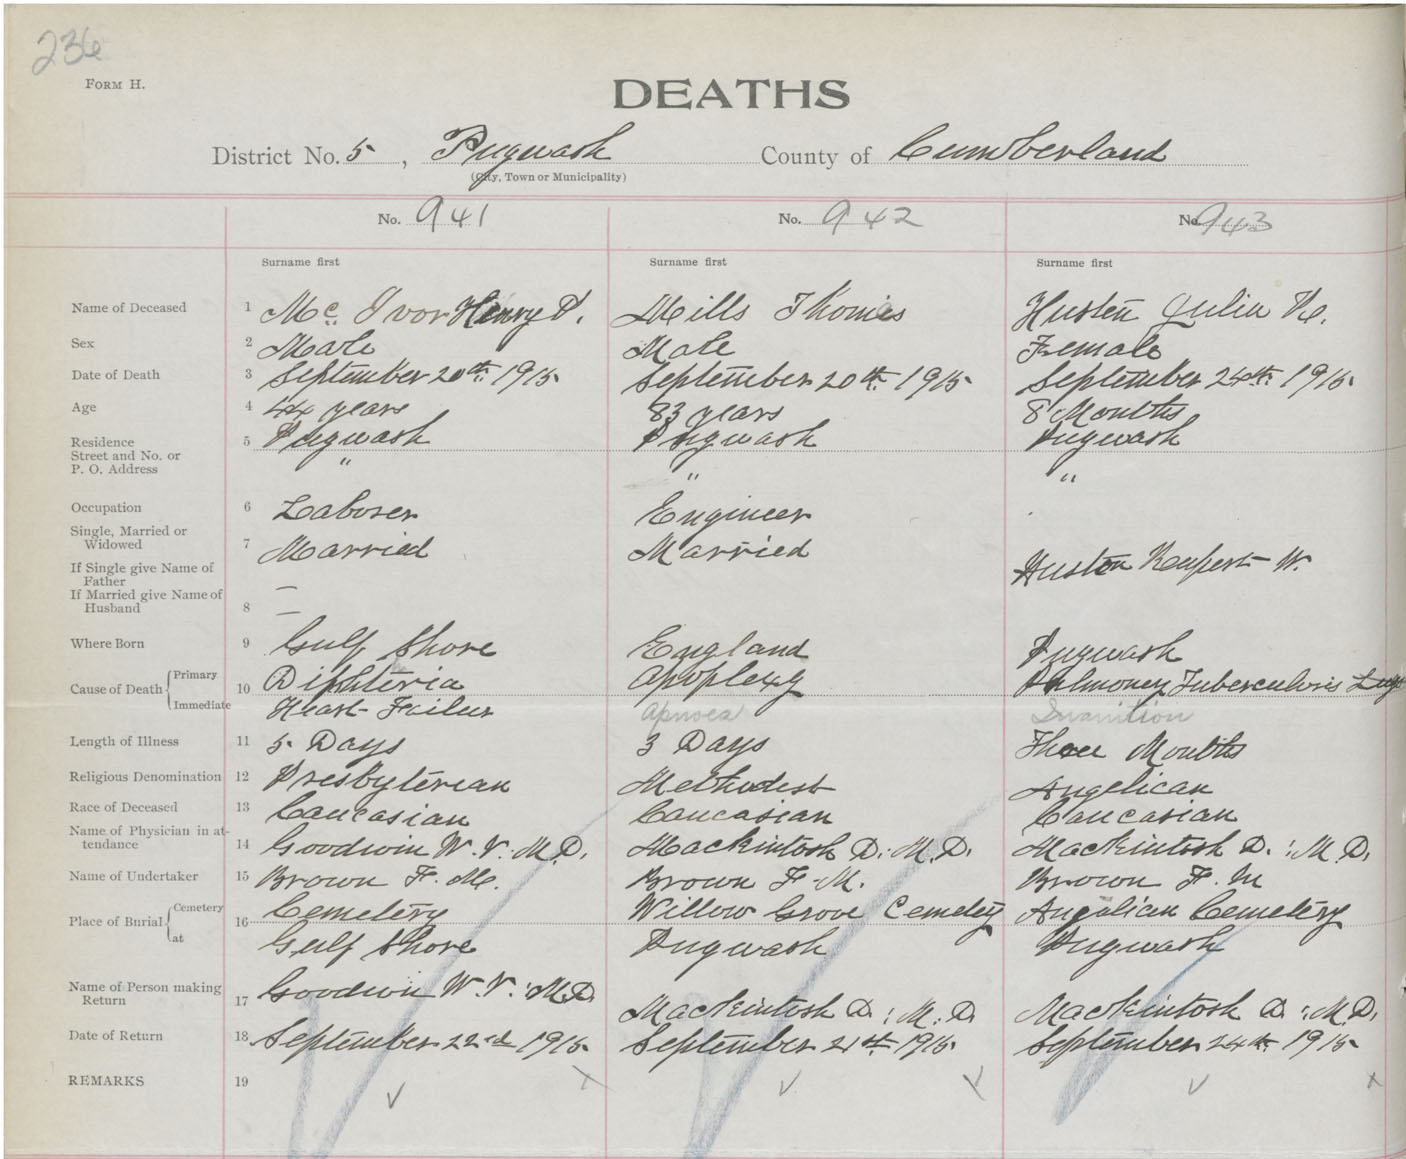 236
FORM H.
DEATHS
District No. 5, Pugwash County of Cumberland
(City, Town or Municipality)
No. 941 No. 942 No. 943
Surname first Surname first Surname first
Name of Deceased 1 Mc Ivor Henry P. Mills Thomas Husten Julia K.
Sex 2 Male Male Female
Date of Death 3 September 20th 1915 September 20th 1915 September 24th 1915
Age 4 44 years 83 years 8 Months
Residence 5 Pugwash Pugwash Pugwash
Street and No. or
P. O. Address " " "
Occupation 6 Laborer Engineer
Single, Married or
Widowed 7 Married Married
If Single give Name of Huston Rupert W.
Father —
If Married give Name of
Husband 8 —
Where Born 9 Gulf Shore England Pugwash
Cause of Death { Primary 10 Diphteria Apoplexy Pulmoney Tuberculosis
Immediate Heart Failur Apnoea Inanition
Length of Illness 11 5 Days 3 Days Three Months
Religious Denomination 12 Presbyterian Methodest Angelican
Race of Deceased 13 Caucasian Caucasian Caucasian
Name of Physician in at-
tendance 14 Goodwin W. V. M.D. Mackintosh D. : M.D. Mackintosh D. : M.D.
Name of Undertaker 15 Brown F. M. Brown F. M. Brown F. M
Place of Burial { Cemetery 16 Cemetery Willow Grove Cemetey Angelican Cemetery
at Gulf Shore Pugwash Pugwash
Name of Person making
Return 17 Goodwin W. V. : M.D. Mackintosh D. : M.D. Mackintosh D. : M.D.
Date of Return 18 September 22nd 1915 September 21st 1915 September 24th 1915
REMARKS 19